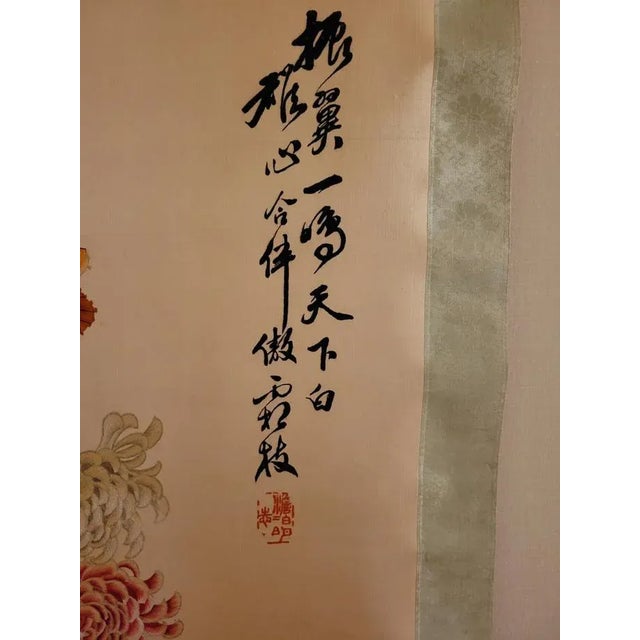 振翼一鳴天下白
雄心合伴傲霜枝